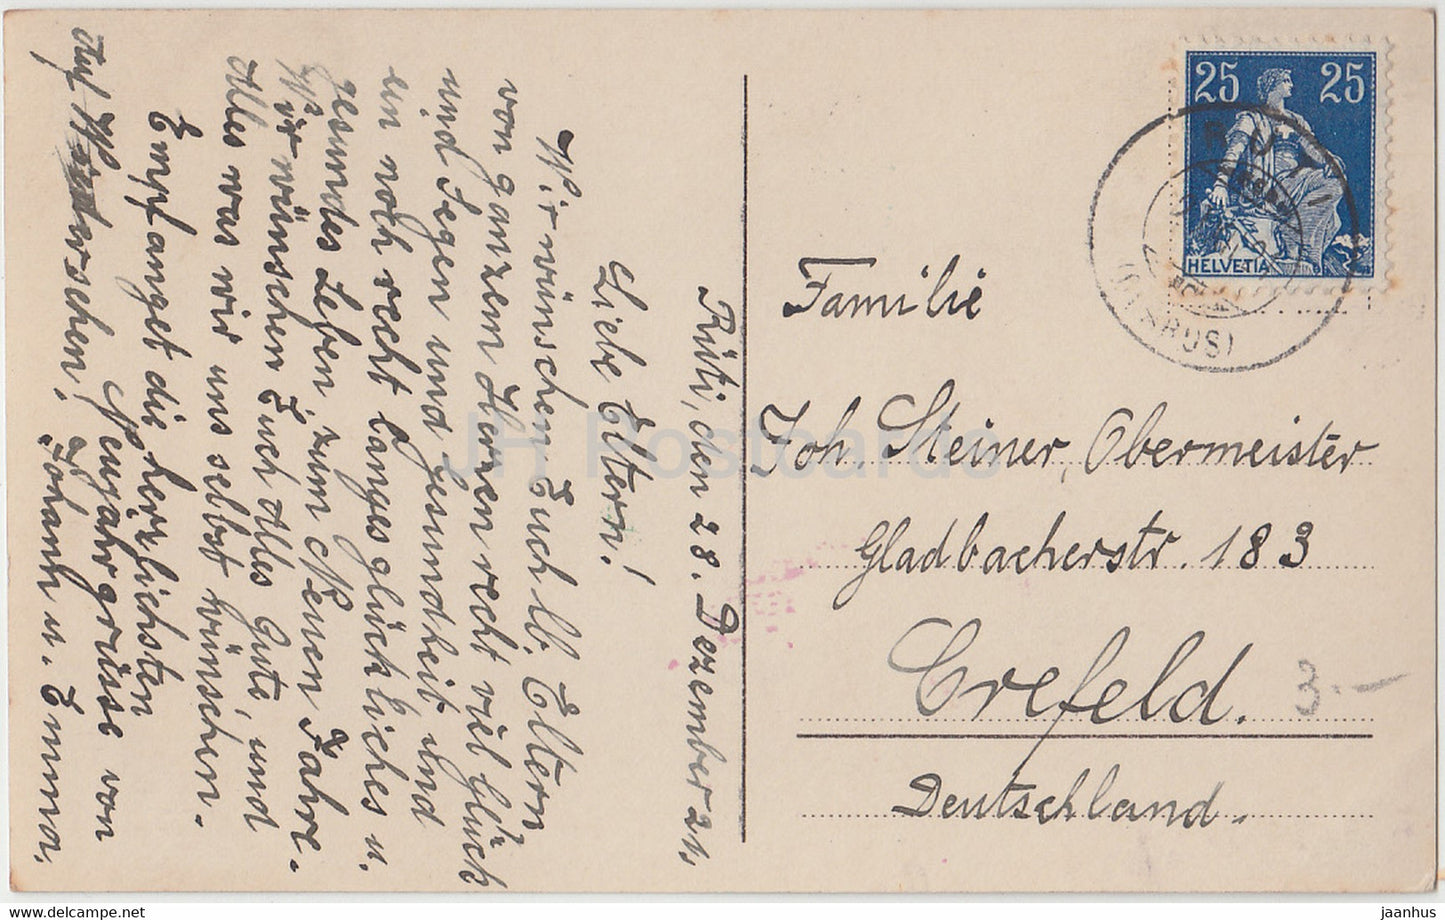 Rüti, den 28. Dezember 21.
Liebe Eltern!
Wir wünschen Euch lb. Eltern
von ganzem Herzen recht viel Glück
und Segen und Gesundheit und
ein noch recht langes glückliches u.
gesundes Leben, zum Neuen Jahre.
Wir wünschen Euch Alles Gute, und
Alles was wir uns selbst wünschen.
Empfanget die herzlichsten
Neujahrgrüsse von
Auf Wiedersehen, Johann u. Emma.
25 25
HELVETIA
RÜTI
(GLARUS)
Familie
Joh. Steiner, Obermeister
Gladbacherstr. 183
Crefeld.
Deutschland.
3.—
JH Postcards
jaanhus @ delcampe.net